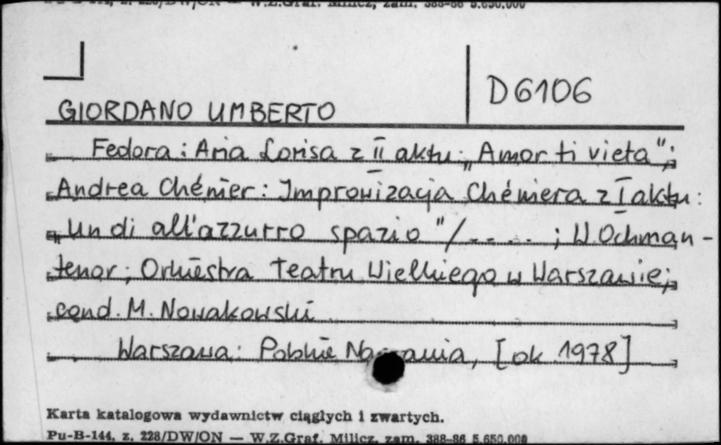 Pu-B-144, z. 228/DW/ON — W.Z.Graf. Milicz, zam. 388-86 5.650.000
D6106
GIORDANO UMBERTO
Fedora : Aria Lorisa z II aktu : „Amor ti vieta";
Andrea Chénier : Improwizacja Chéniera z I aktu :
„Un di all'azzurro spazio"/..... ; W. Ochman -
tenor ; Orkiestra Teatru Wielkiego w Warszawie ;
cond. M. Nowakowski
Warszawa : Polskie Nagrania, [ok 1978]
Karta katalogowa wydawnictw ciągłych i zwartych.
Pu-B-144, z. 228/DW/ON — W.Z.Graf. Milicz, zam. 388-86 5.650.000